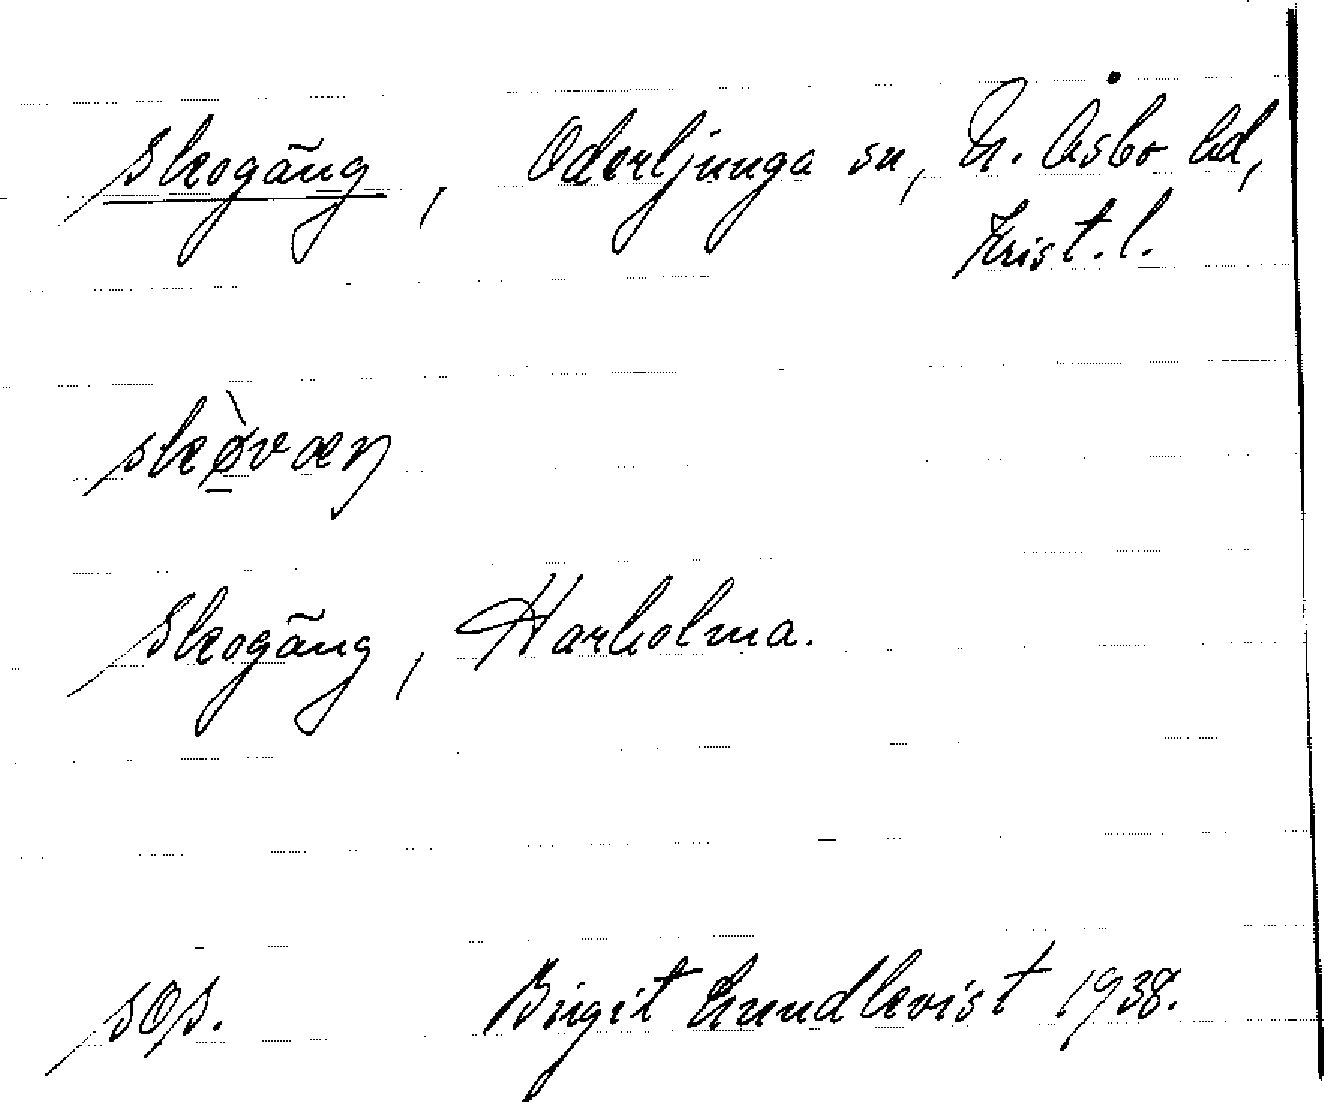 skogäng, Oderljunga sn, N. Åsbo hd,
Krist. l.
skǿvæŋ
Skogäng, Harholma.
sOs. Birgit Lundkvist 1938.